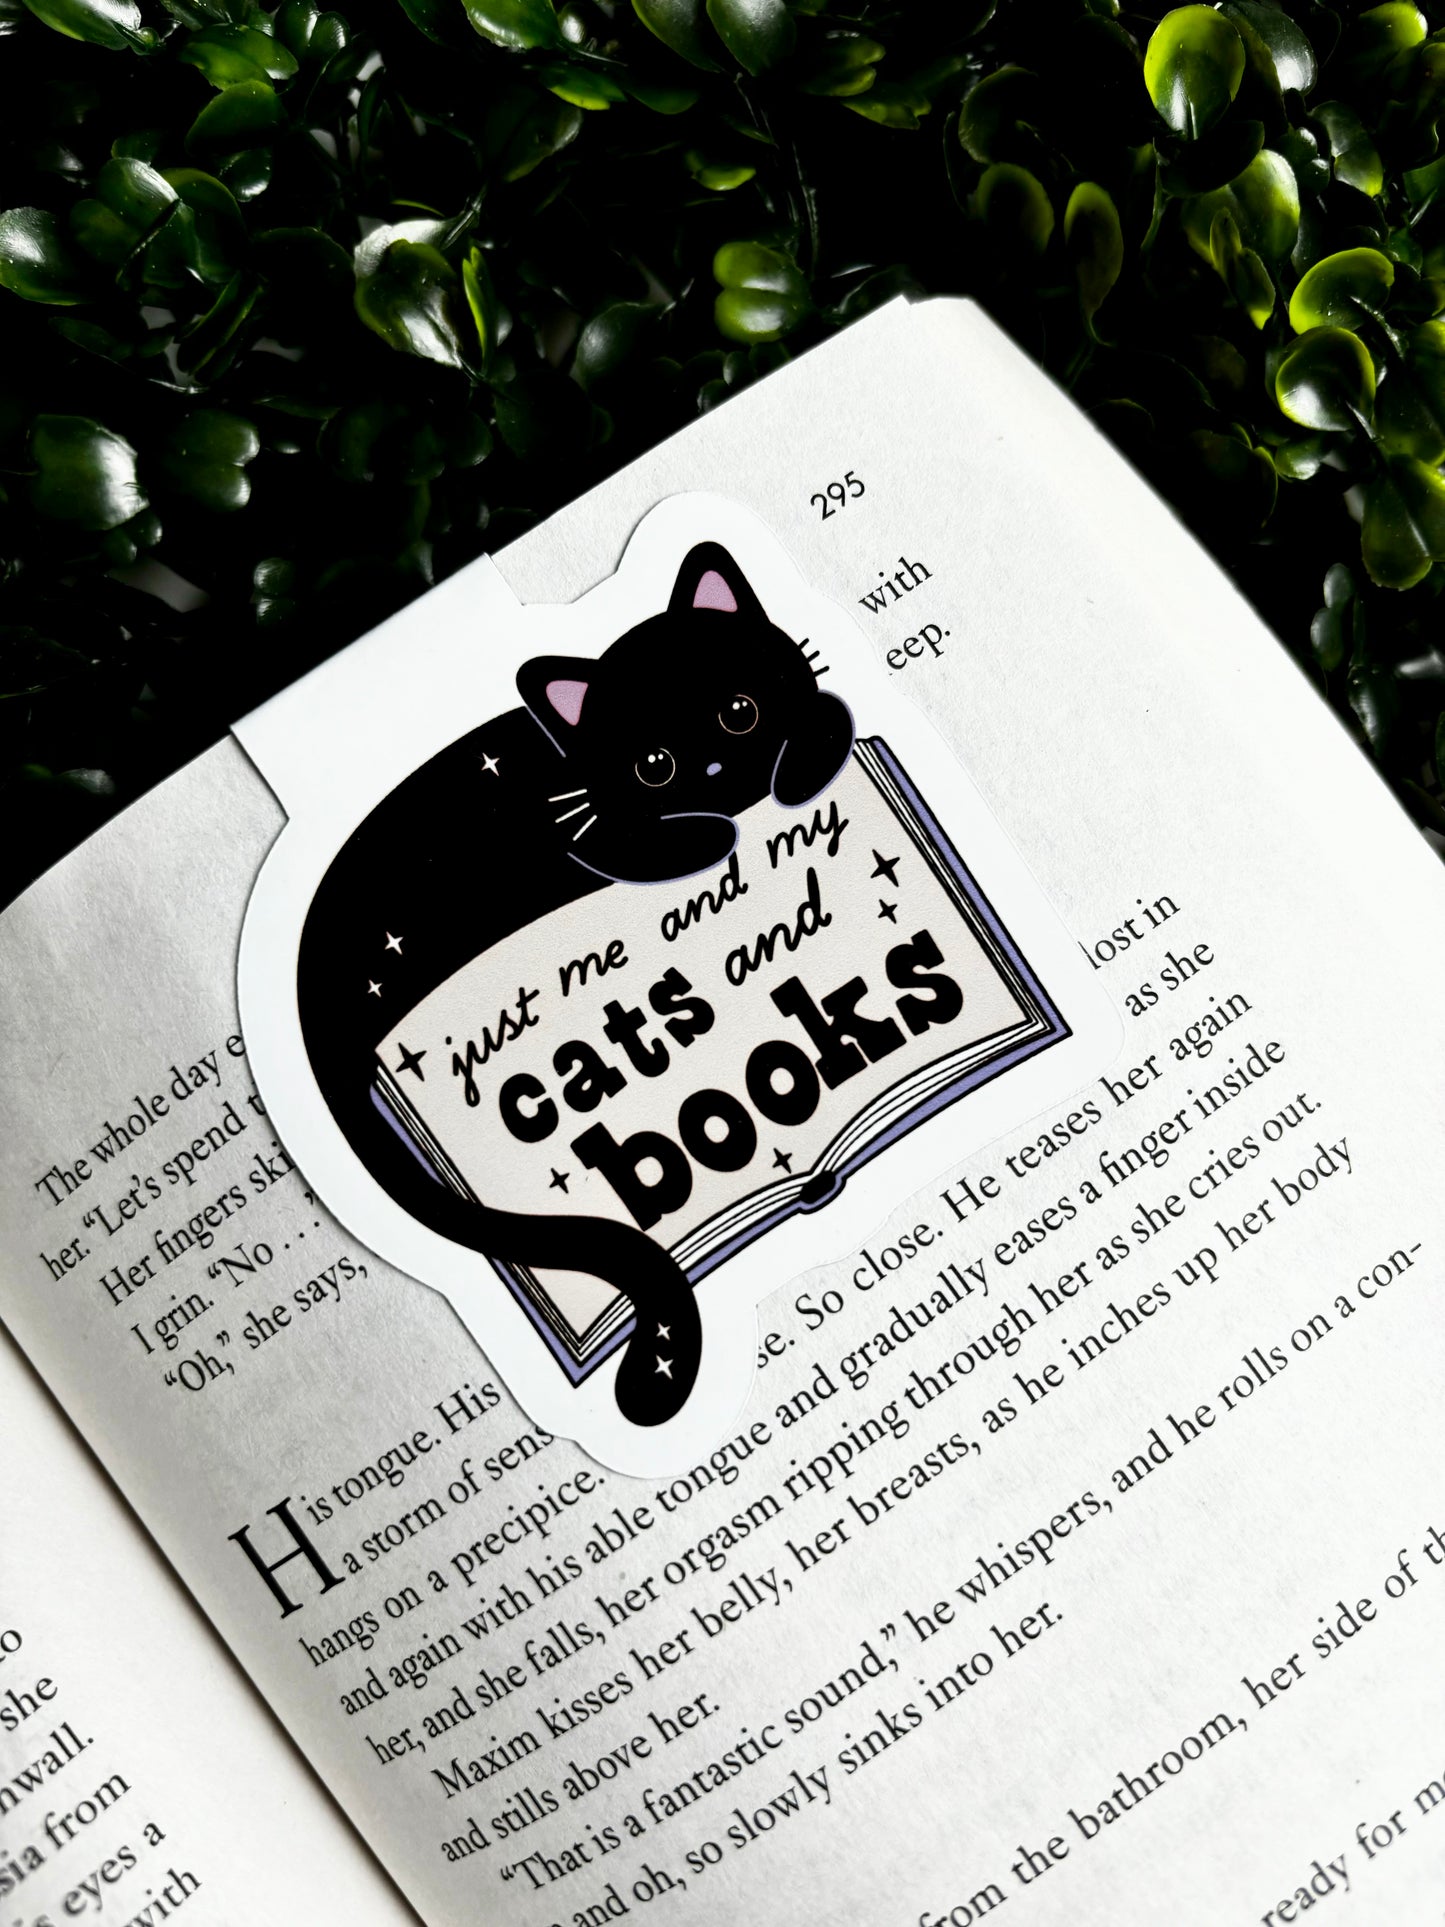 295
with
eep.
just me and my
cats and
books
lost in
as she
The whole day e
her. “Let’s spend t
Her fingers ski
I grin. “No . . .”
“Oh,” she says,
His tongue. His
a storm of sens
hangs on a precipice.
se. So close. He teases her again
and again with his able tongue and gradually eases a finger inside
her, and she falls, her orgasm ripping through her as she cries out.
Maxim kisses her belly, her breasts, as he inches up her body
and stills above her.
“That is a fantastic sound,” he whispers, and he rolls on a con-
and oh, so slowly sinks into her.
from the bathroom, her side of th
ready for m
she
nwall.
sia from
eyes a
with